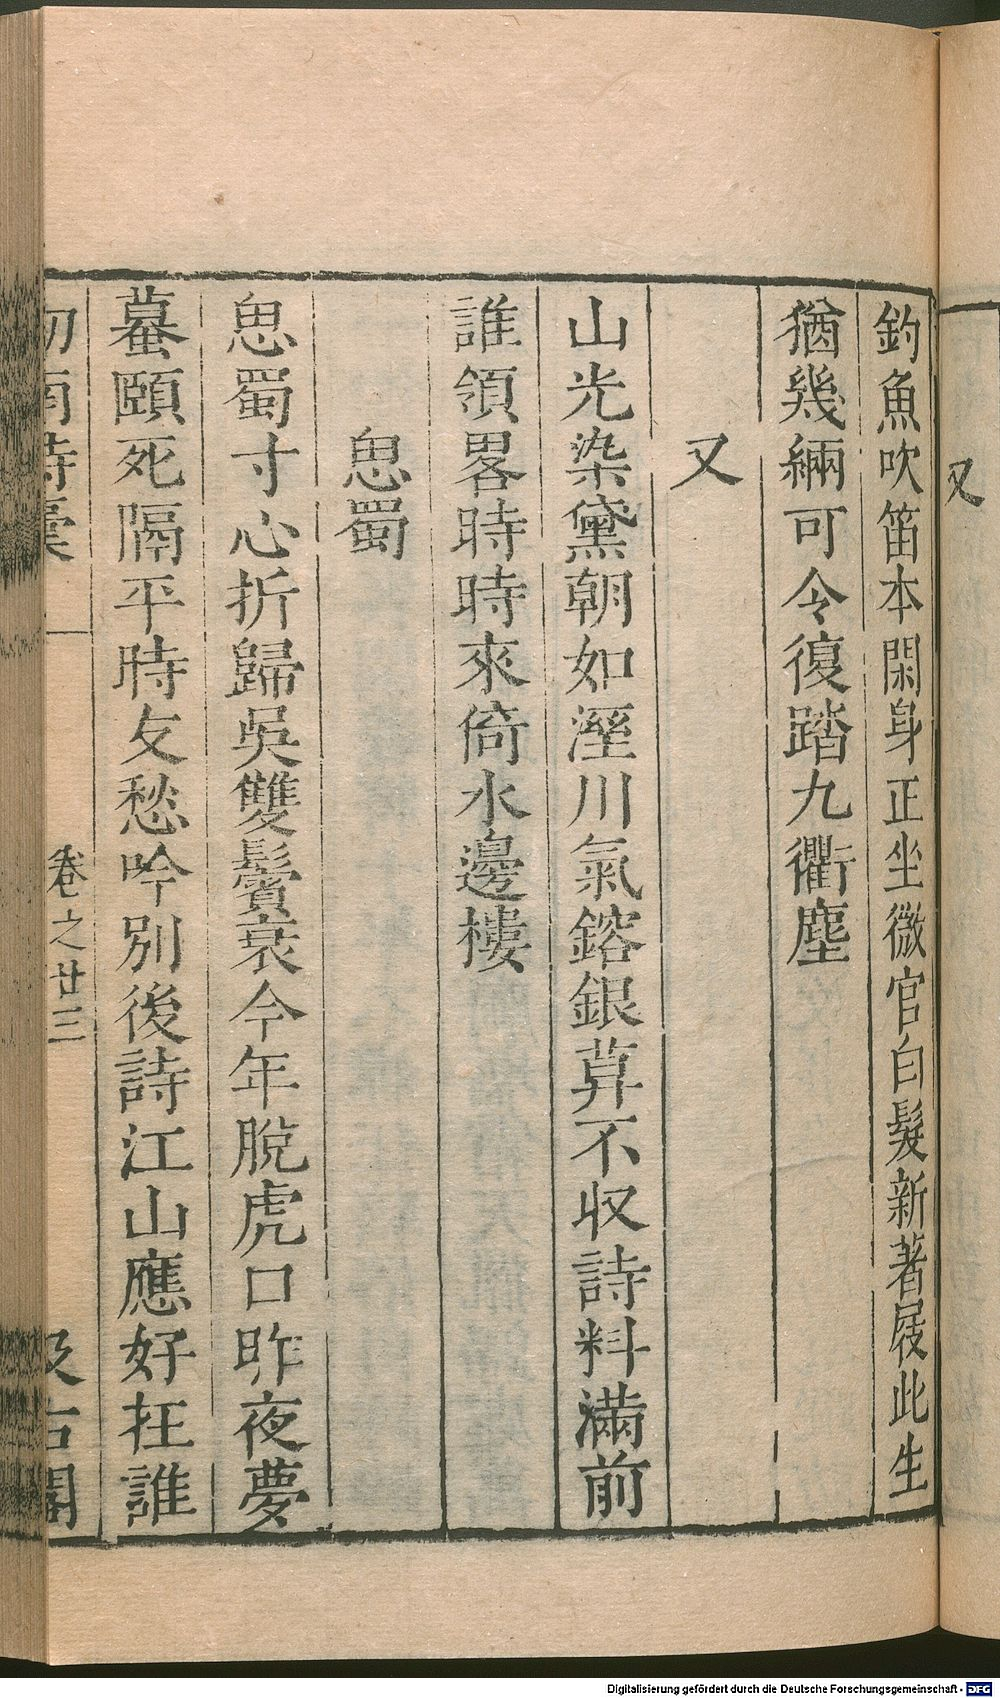 又
釣魚吹笛本閑身正坐微官白髮新著屐此生
猶幾緉可令復踏九衢塵
又
山光染黛朝如溼川氣鎔銀暮不收詩料滿前
誰領畧時時來倚水邊樓
思蜀
思蜀寸心折歸吳雙鬢衰今年脫虎口昨夜夢
蟇頤死隔平時友愁吟別後詩江山應好在誰
劒南詩稾
卷之廿三
汲古閣
Digitalisierung gefördert durch die Deutsche Forschungsgemeinschaft - DFG